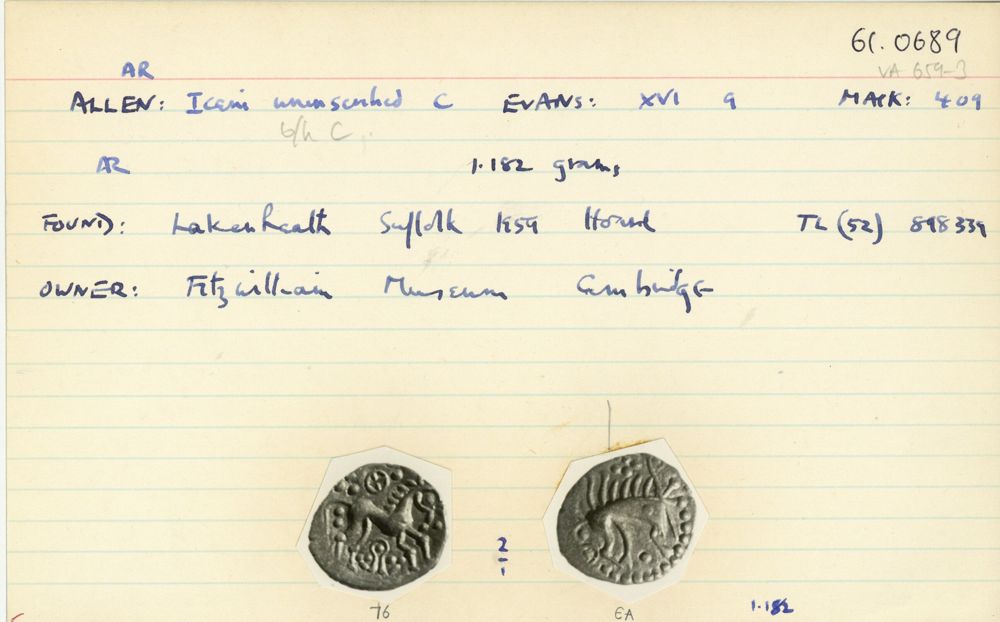 61.0689
VA 659-3
AR
ALLEN: Iceni uninscribed C EVANS: XVI 9 MACK: 409
b/h C
AR 1.182 grams
FOUND: Lakenheath Suffolk 1959 Hoard TL (52) 898339
OWNER: Fitzwilliam Museum Cambridge
2
1
76 EA 1.182